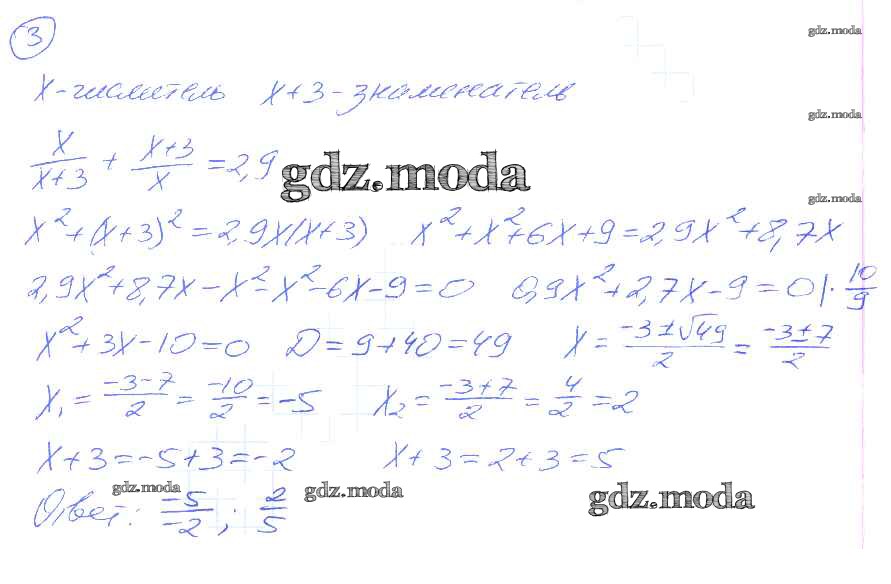 3 gdz.moda
x - числитель x+3 - знаменатель
gdz.moda
x/(x+3) + (x+3)/x = 2,9 gdz.moda
gdz.moda
x² + (x+3)² = 2,9x(x+3) x² + x² + 6x + 9 = 2,9x² + 8,7x
2,9x² + 8,7x - x² - x² - 6x - 9 = 0 0,9x² + 2,7x - 9 = 0 | · 10/9
x² + 3x - 10 = 0 D = 9 + 40 = 49 x = (-3 ± √49)/2 = (-3 ± 7)/2
x₁ = (-3-7)/2 = -10/2 = -5 x₂ = (-3+7)/2 = 4/2 = 2
x + 3 = -5 + 3 = -2 x + 3 = 2 + 3 = 5
gdz.moda gdz.moda gdz.moda
Ответ: -5/-2 ; 2/5